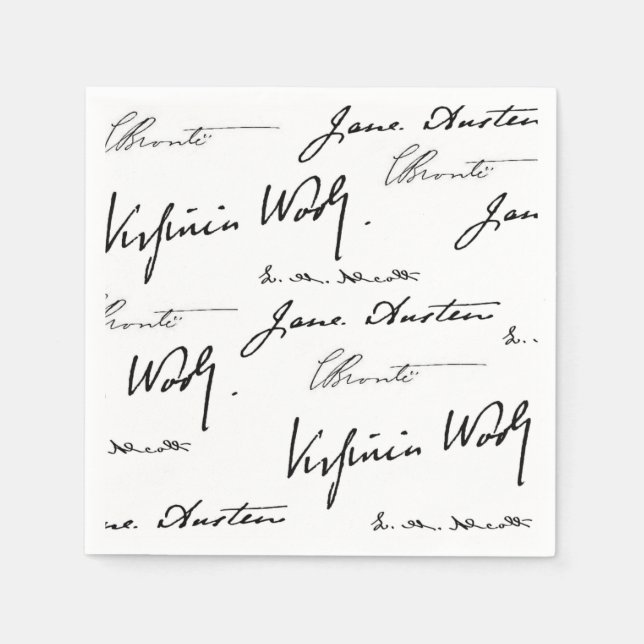 CBrontë
Jane. Austen
CBrontë
Virginia Woolf.
Jan
L. M. Alcott
Brontë
Jane. Austen
L.
Woolf.
CBrontë
Virginia Woolf
Alcott
ne. Austen
L. M. Alcott